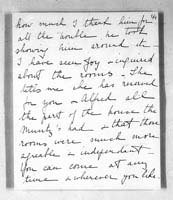 how much I thank him for
all the trouble he took
showing him around it —
I have seen Joy & inquired
about the rooms — She
tells me she has reserved
for you & Alfred all
the part of the house the
Muntz's had & that those
rooms were much more
agreable & independent —
You can come at any
time & wherever you like.